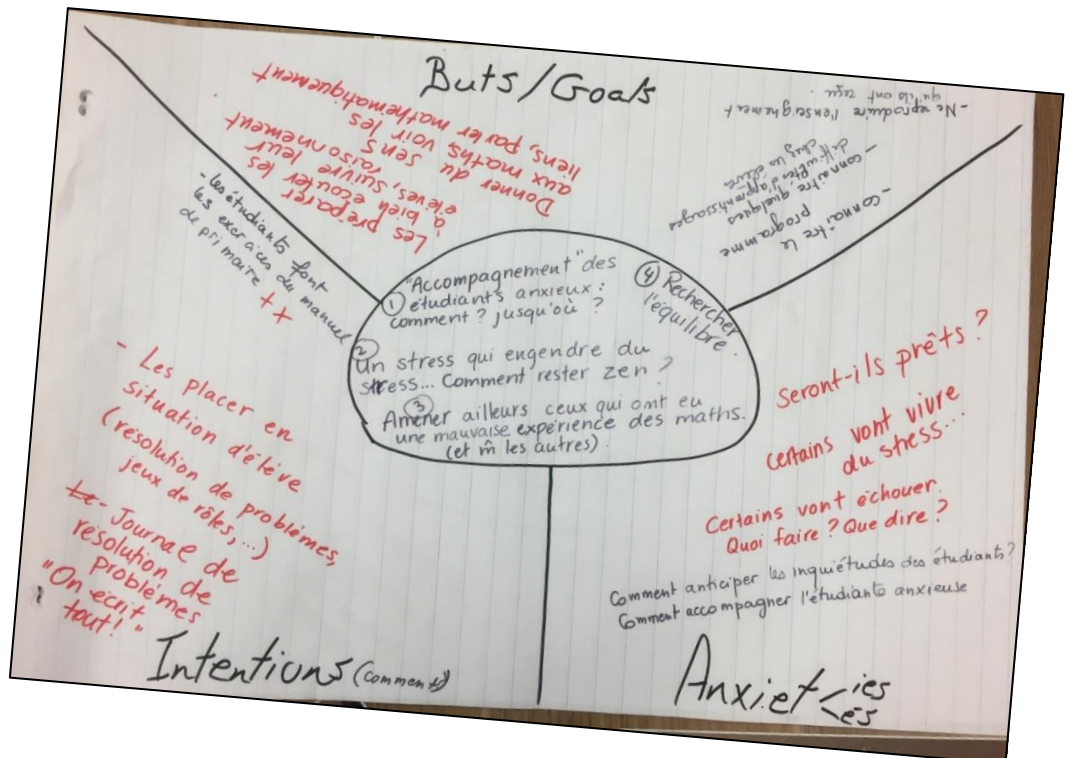 Buts/Goals
Donner du sens
aux maths, voir les
liens, parler mathématiquement
Les préparer
à bien écouter les
élèves, suivre leur
raisonnement
- Ne reproduire l'enseignement
qu'ils ont reçu.
- connaître quelques
difficultés d'apprentissages
chez un élève
- connaître le
programme
- les étudiants font
les exercices du manuel
de primaire ++
① "Accompagnement" des
étudiants anxieux :
comment ? jusqu'où ?
② Un stress qui engendre du
stress... Comment rester zen ?
③ Amener ailleurs ceux qui ont eu
une mauvaise expérience des maths.
(et m̂ les autres).
④ Rechercher
l'équilibre.
- Les placer en
situation d'élève
(résolution de problèmes,
jeux de rôles, ...)
- Journal de
résolution de
problèmes
"On écrit
tout!"
Intentions (comment)
Seront-ils prêts ?
Certains vont vivre
du stress...
Certains vont échouer.
Quoi faire ? Que dire ?
Comment anticiper les inquiétudes des étudiants?
Comment accompagner l'étudiants anxieuse
Anxiet < ies
és